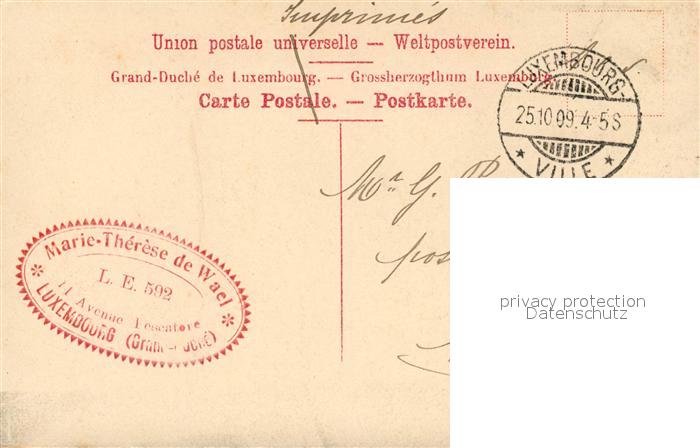 Imprimés
Union postale universelle — Weltpostverein.
Grand-Duché de Luxembourg. — Grossherzogthum Luxemburg.
Carte Postale. — Postkarte.
LUXEMBOURG
25.10 09. 4-5S
* VILLE *
Mr G.
Marie-Thérèse de Wael
L. E. 592
11 Avenue Pescatore
LUXEMBOURG (Grand-Duché)
privacy protection
Datenschutz